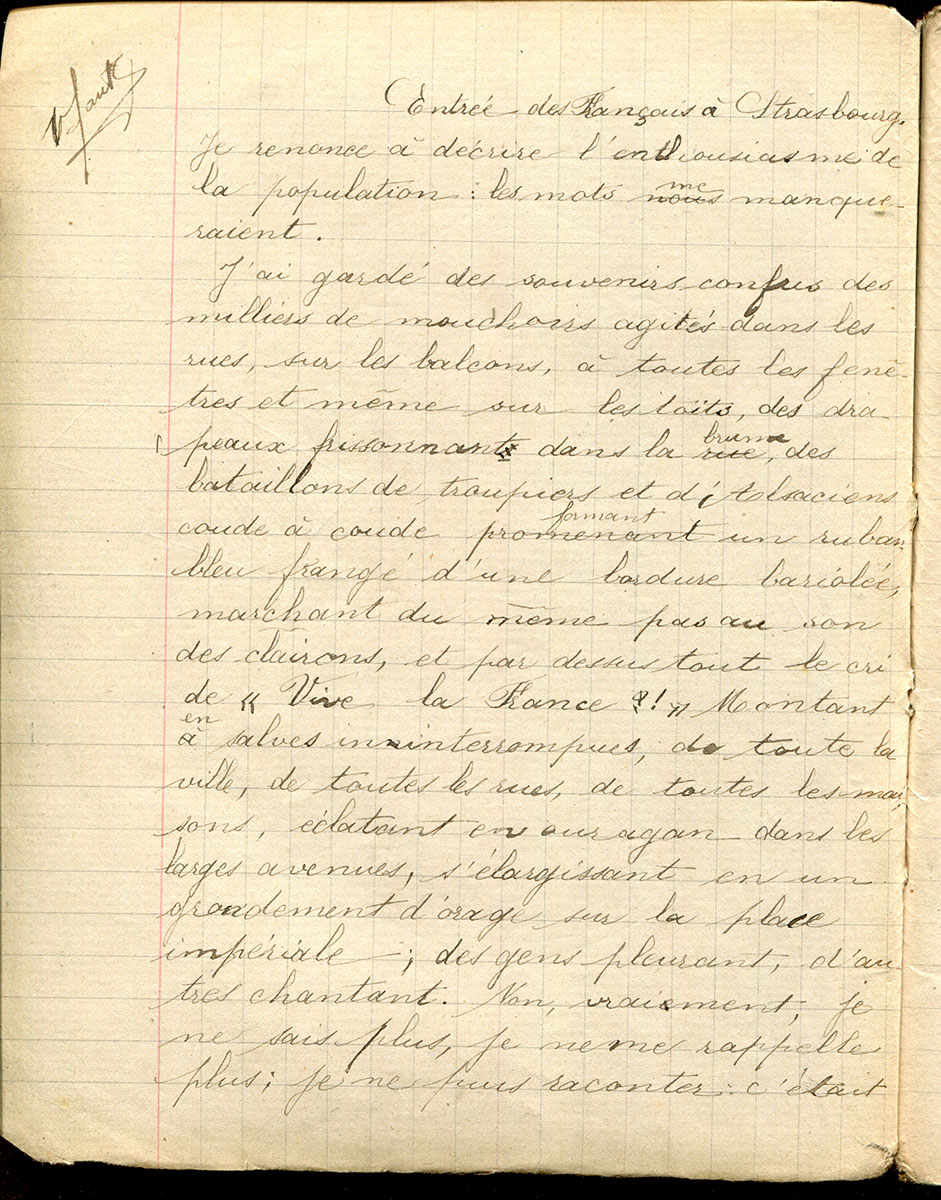 faute
Entrée des Français à Strasbourg.
Je renonce à décrire l'enthousiasme de
la population : les mots nous me manque-
raient.
J'ai gardé des souvenirs confus des
milliers de mouchoirs agités dans les
rues, sur les balcons, à toutes les fenê-
tres et même sur les toits, des dra-
peaux frissonnants dans la rue brume, des
bataillons de troupiers et d'Alsaciens
coude à coude promenant formant un ruban
bleu frangé d'une bordure bariolée,
marchant du même pas au son
des clairons, et par dessus tout le cri
de « Vive la France ! » Montant
à en salves ininterrompues, de toute la
ville, de toutes les rues, de toutes les mai-
sons, éclatant en ouragan dans les
larges avenues, s'élargissant en un
grondement d'orage sur la place
impériale ; des gens pleurant, d'au-
tres chantant. Non, vraiement, je
ne sais plus, je ne me rappelle
plus ; je ne puis raconter : c'était